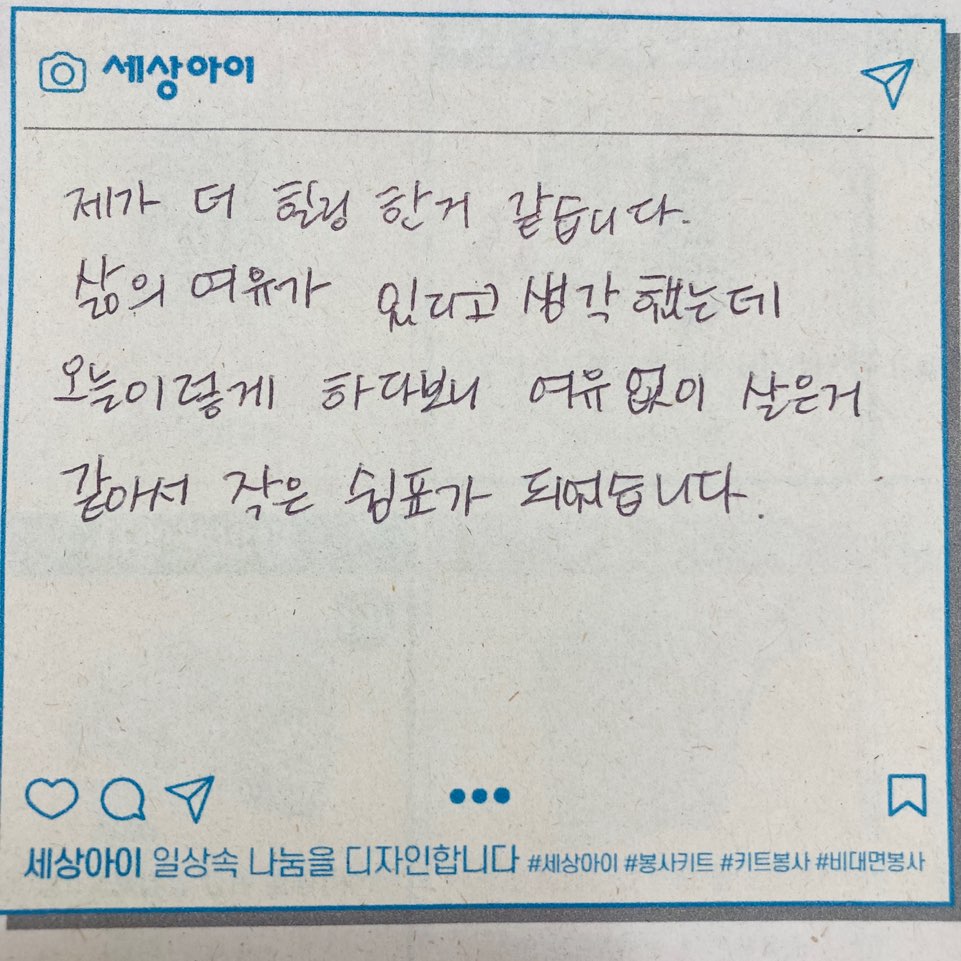 세상아이
제가 더 힐링 한거 같습니다.
삶의 여유가 있다고 생각했는데
오늘이렇게 하다보니 여유없이 살은거
같아서 작은 쉼표가 되었습니다.
세상아이 일상속 나눔을 디자인합니다 #세상아이 #봉사키트 #키트봉사 #비대면봉사